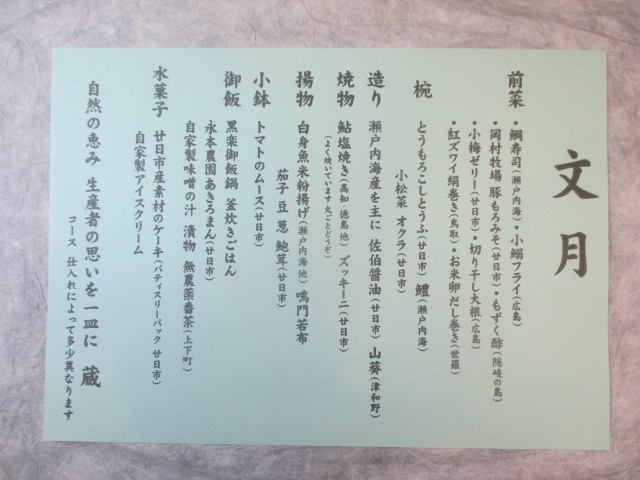 文月
前菜 ・鯛寿司(瀬戸内海)・小鰯フライ(広島)
・岡村牧場 豚もろみそ(廿日市)・もずく酢(隠岐の島)
・小梅ゼリー(廿日市)・切り干し大根(広島)
・紅ズワイ絹巻き(鳥取)・お米卵だし巻き(世羅)
椀 とうもろこしとうふ(廿日市) 鱧(瀬戸内海)
小松菜 オクラ(廿日市)
造り 瀬戸内海産を主に 佐伯醤油(廿日市) 山葵(津和野)
焼物 鮎塩焼き(高知・徳島他) ズッキーニ(廿日市)
(よく焼いています 丸ごとどうぞ)
揚物 白身魚米粉揚げ(瀬戸内海他) 鳴門若布
茄子 豆 葱 鮑茸(廿日市)
小鉢 トマトのムース(廿日市)
御飯 黒楽御飯鍋 釜炊きごはん
永本農園 あきろまん(廿日市)
自家製味噌の汁 漬物 無農薬番茶(上下町)
水菓子 廿日市産素材のケーキ(パティスリーパック 廿日市)
自家製アイスクリーム
自然の恵み 生産者の思いを一皿に 蔵
コース 仕入れによって多少異なります